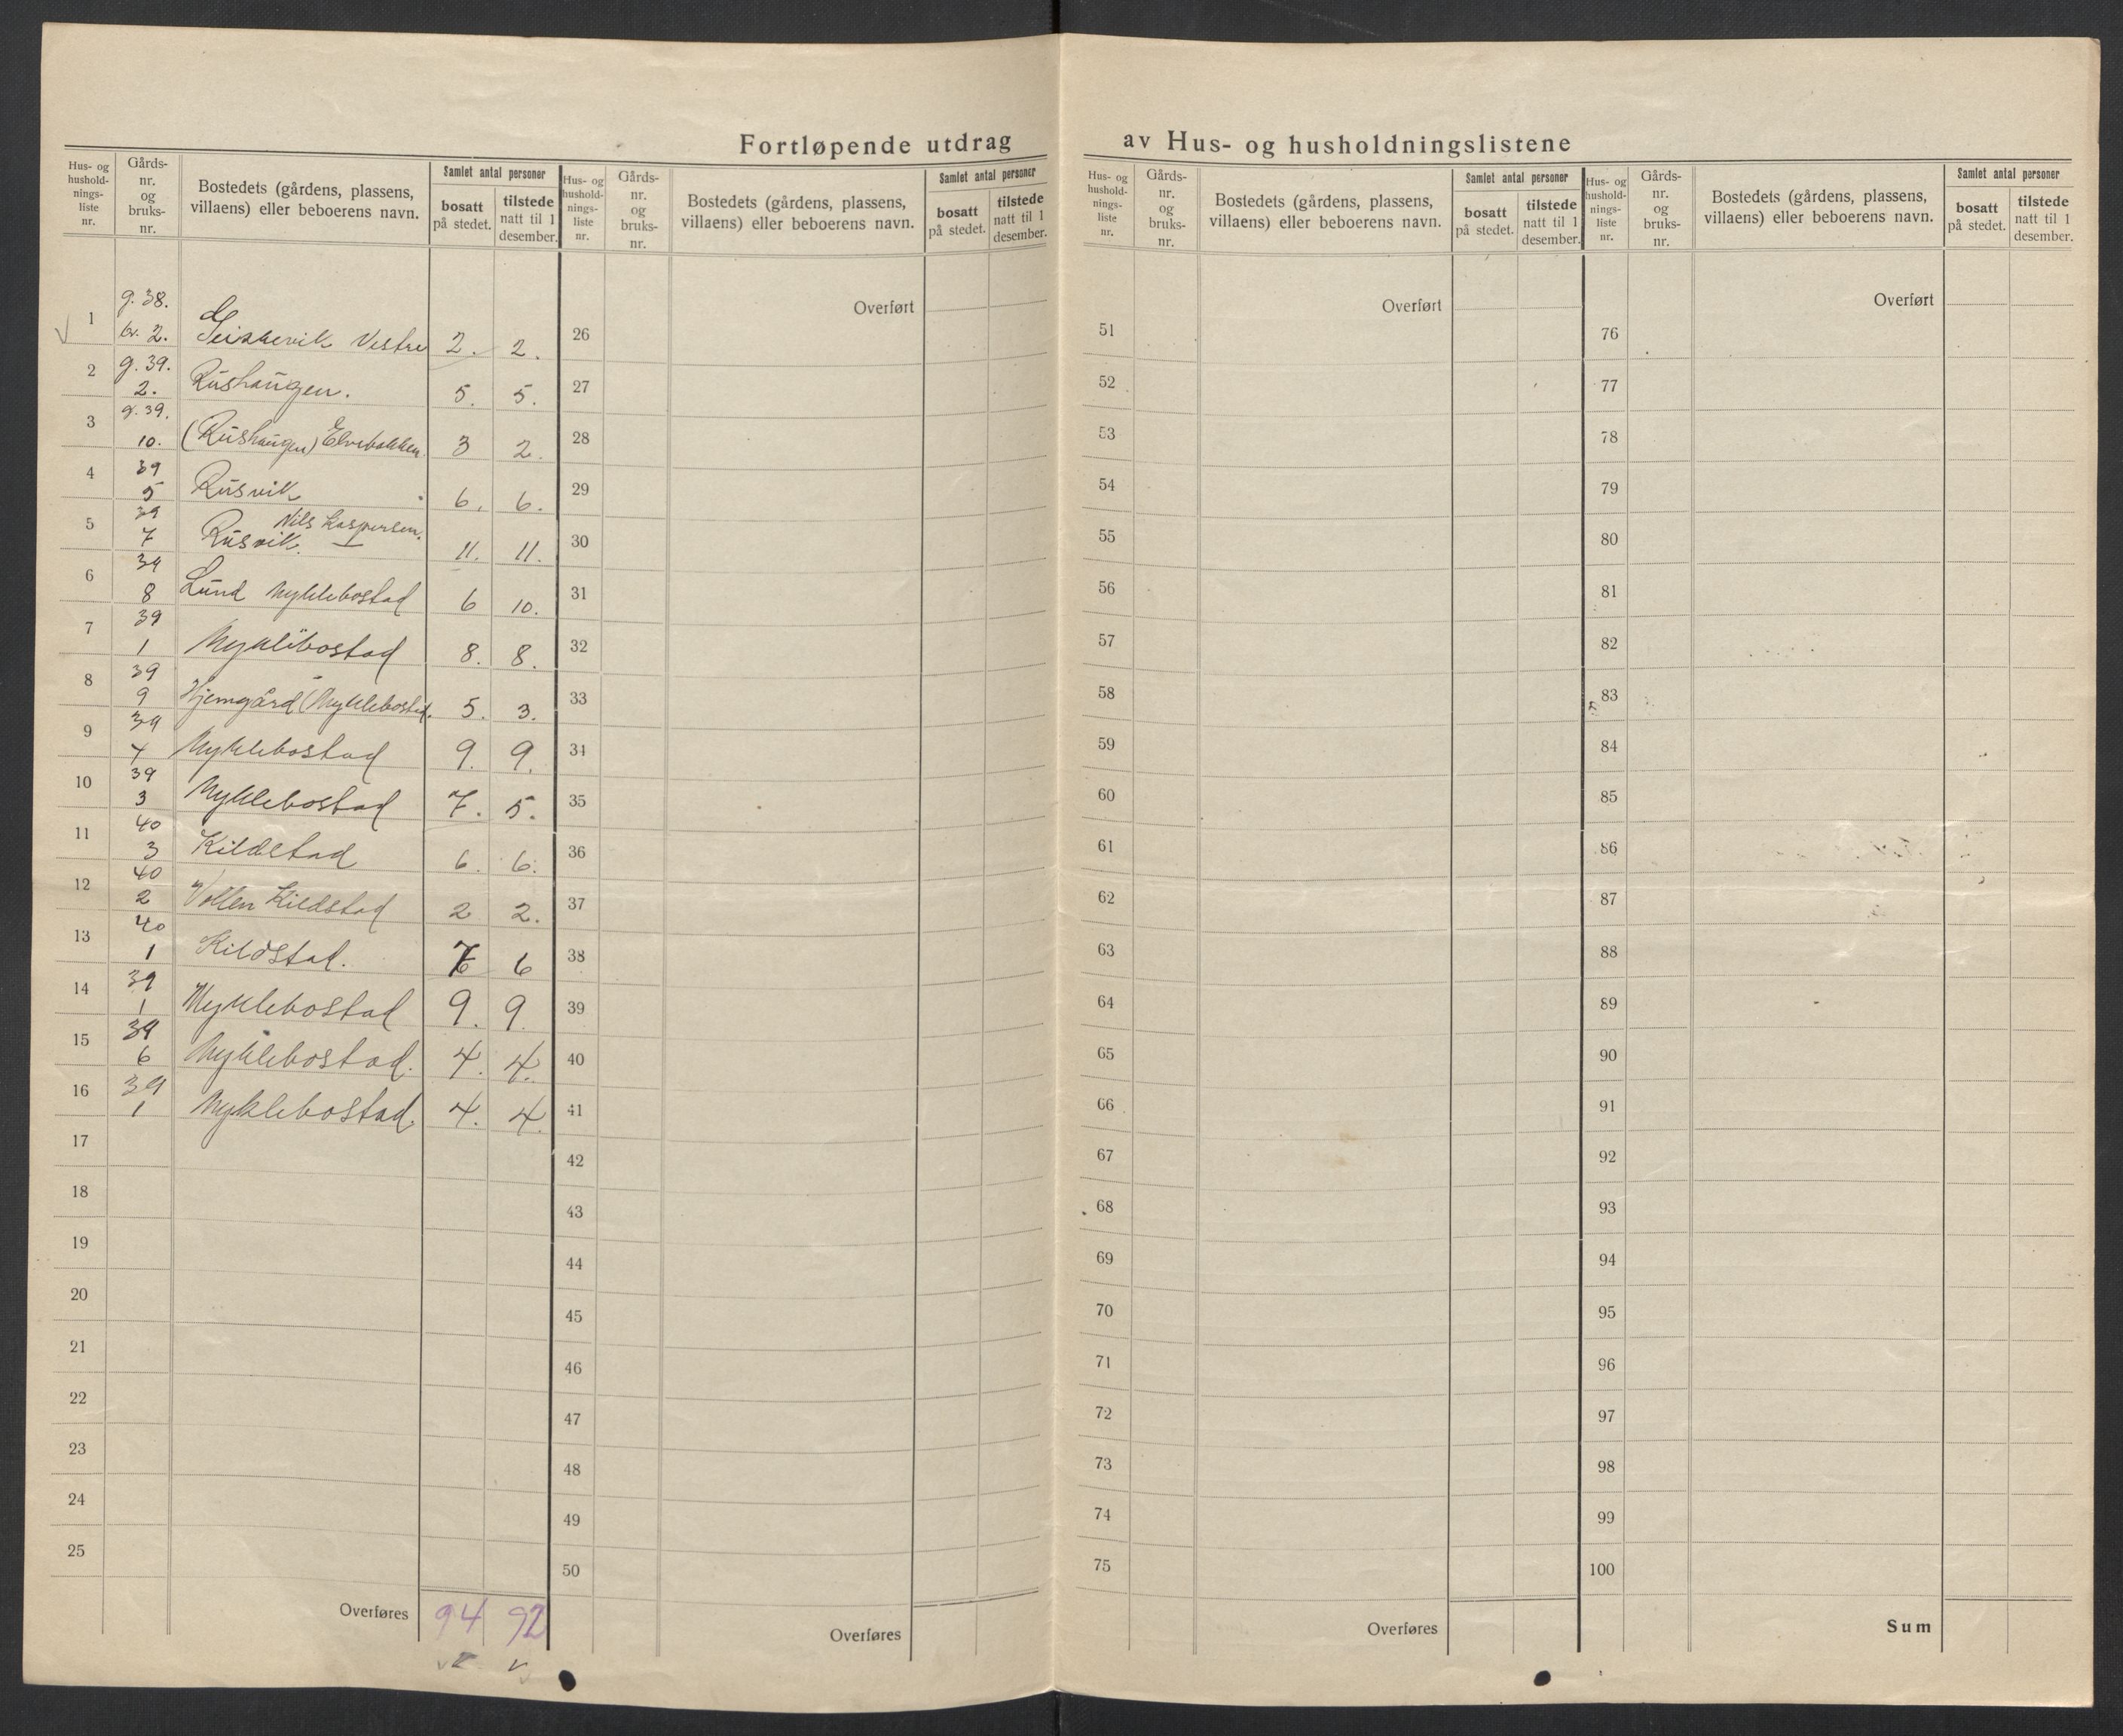 Fortløpende utdrag av Hus- og husholdningslistene
Hus- og hushold-nings-liste nr.
Gårds-nr. og bruks-nr.
Bostedets (gårdens, plassens, villaens) eller beboerens navn.
Samlet antal personer
bosatt på stedet.
tilstede natt til 1 desember.
1 g. 38. br. 2. Vestre 2. 2.
2 g. 39. 2. Rushaugen. 5. 5.
3 g. 39. 10. (Rushaugen) Elvebakken 3 2.
4 39 5 Rusvik 6. 6.
5 39 7 Rusvik. Nils Kaspersen. 11. 11.
6 39 8 Lund Myklebostad 6 10.
7 39 1 Myklebostad 8. 8.
8 39 9 Hjemgård (Myklebostad. 5. 3.
9 39 4 Myklebostad 9. 9.
10 39 3 Myklebostad 7. 5.
11 40 3 Kildstad 6. 6.
12 40 2 Vollen Kildstad 2 2.
13 40 1 Kildstad. 6 6
14 39 1 Myklebostad 9. 9.
15 39 6 Myklebostad. 4. 4.
16 39 1 Myklebostad. 4. 4.
17
18
19
20
21
22
23
24
25
Overføres 94 92
Hus- og hushold-nings-liste nr.
Gårds-nr. og bruks-nr.
Bostedets (gårdens, plassens, villaens) eller beboerens navn.
Samlet antal personer
bosatt på stedet.
tilstede natt til 1 desember.
Overført
26
27
28
29
30
31
32
33
34
35
36
37
38
39
40
41
42
43
44
45
46
47
48
49
50
Overføres
Hus- og hushold-nings-liste nr.
Gårds-nr. og bruks-nr.
Bostedets (gårdens, plassens, villaens) eller beboerens navn.
Samlet antal personer
bosatt på stedet.
tilstede natt til 1 desember.
Overført
51
52
53
54
55
56
57
58
59
60
61
62
63
64
65
66
67
68
69
70
71
72
73
74
75
Overføres
Hus- og hushold-nings-liste nr.
Gårds-nr. og bruks-nr.
Bostedets (gårdens, plassens, villaens) eller beboerens navn.
Samlet antal personer
bosatt på stedet.
tilstede natt til 1 desember.
Overført
76
77
78
79
80
81
82
83
84
85
86
87
88
89
90
91
92
93
94
95
96
97
98
99
100
Sum